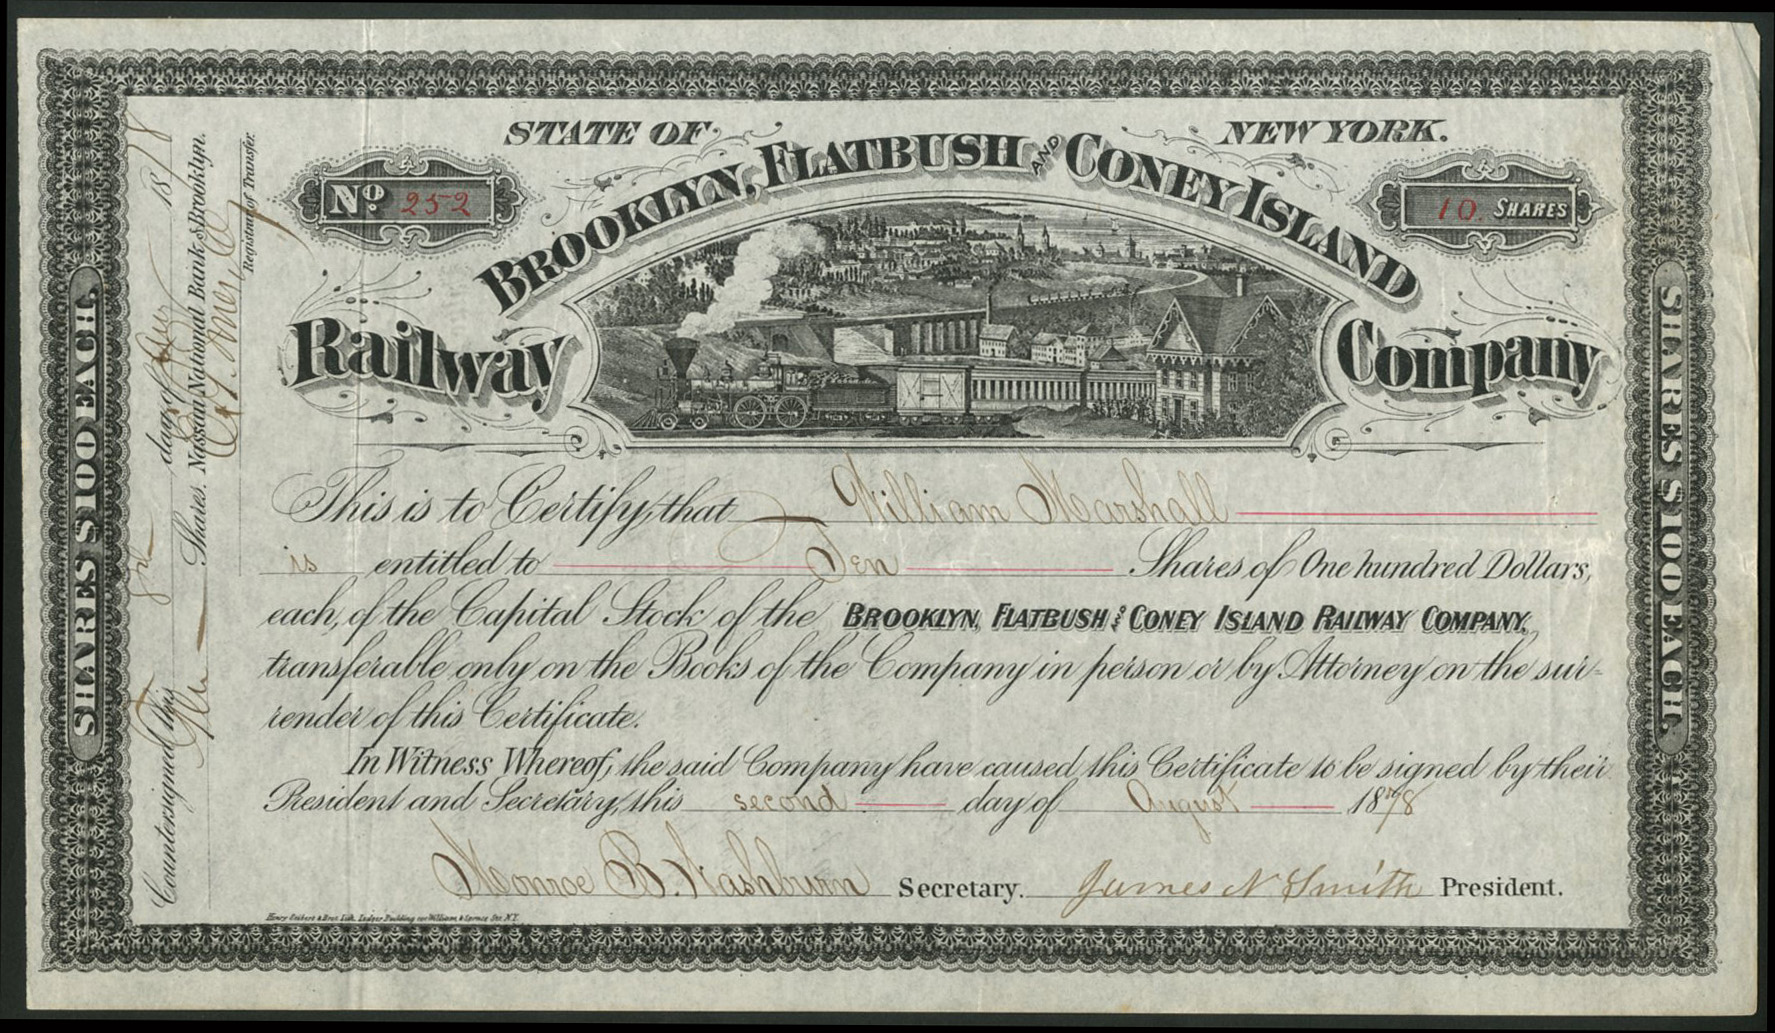 STATE OF NEW YORK.
No. 252
10. SHARES
BROOKLYN, FLATBUSH AND CONEY ISLAND
Railway Company
This is to Certify, that William Marshall
is entitled to Ten Shares of One hundred Dollars,
each, of the Capital Stock of the BROOKLYN, FLATBUSH & CONEY ISLAND RAILWAY COMPANY,
transferable only on the Books of the Company in person or by Attorney on the sur-
render of this Certificate.
In Witness Whereof, the said Company have caused this Certificate to be signed by their
President and Secretary, this second day of August 1878
Monroe B. Washburn Secretary. James N Smith President.
Henry Seibert & Bros. Lith. Ledger Building cor William & Spruce Sts. N.Y.
SHARES $100 EACH.
SHARES $100 EACH.
Countersigned this day of 1878
Ten Shares. Nassau National Bank of Brooklyn.
Registrar of Transfer.